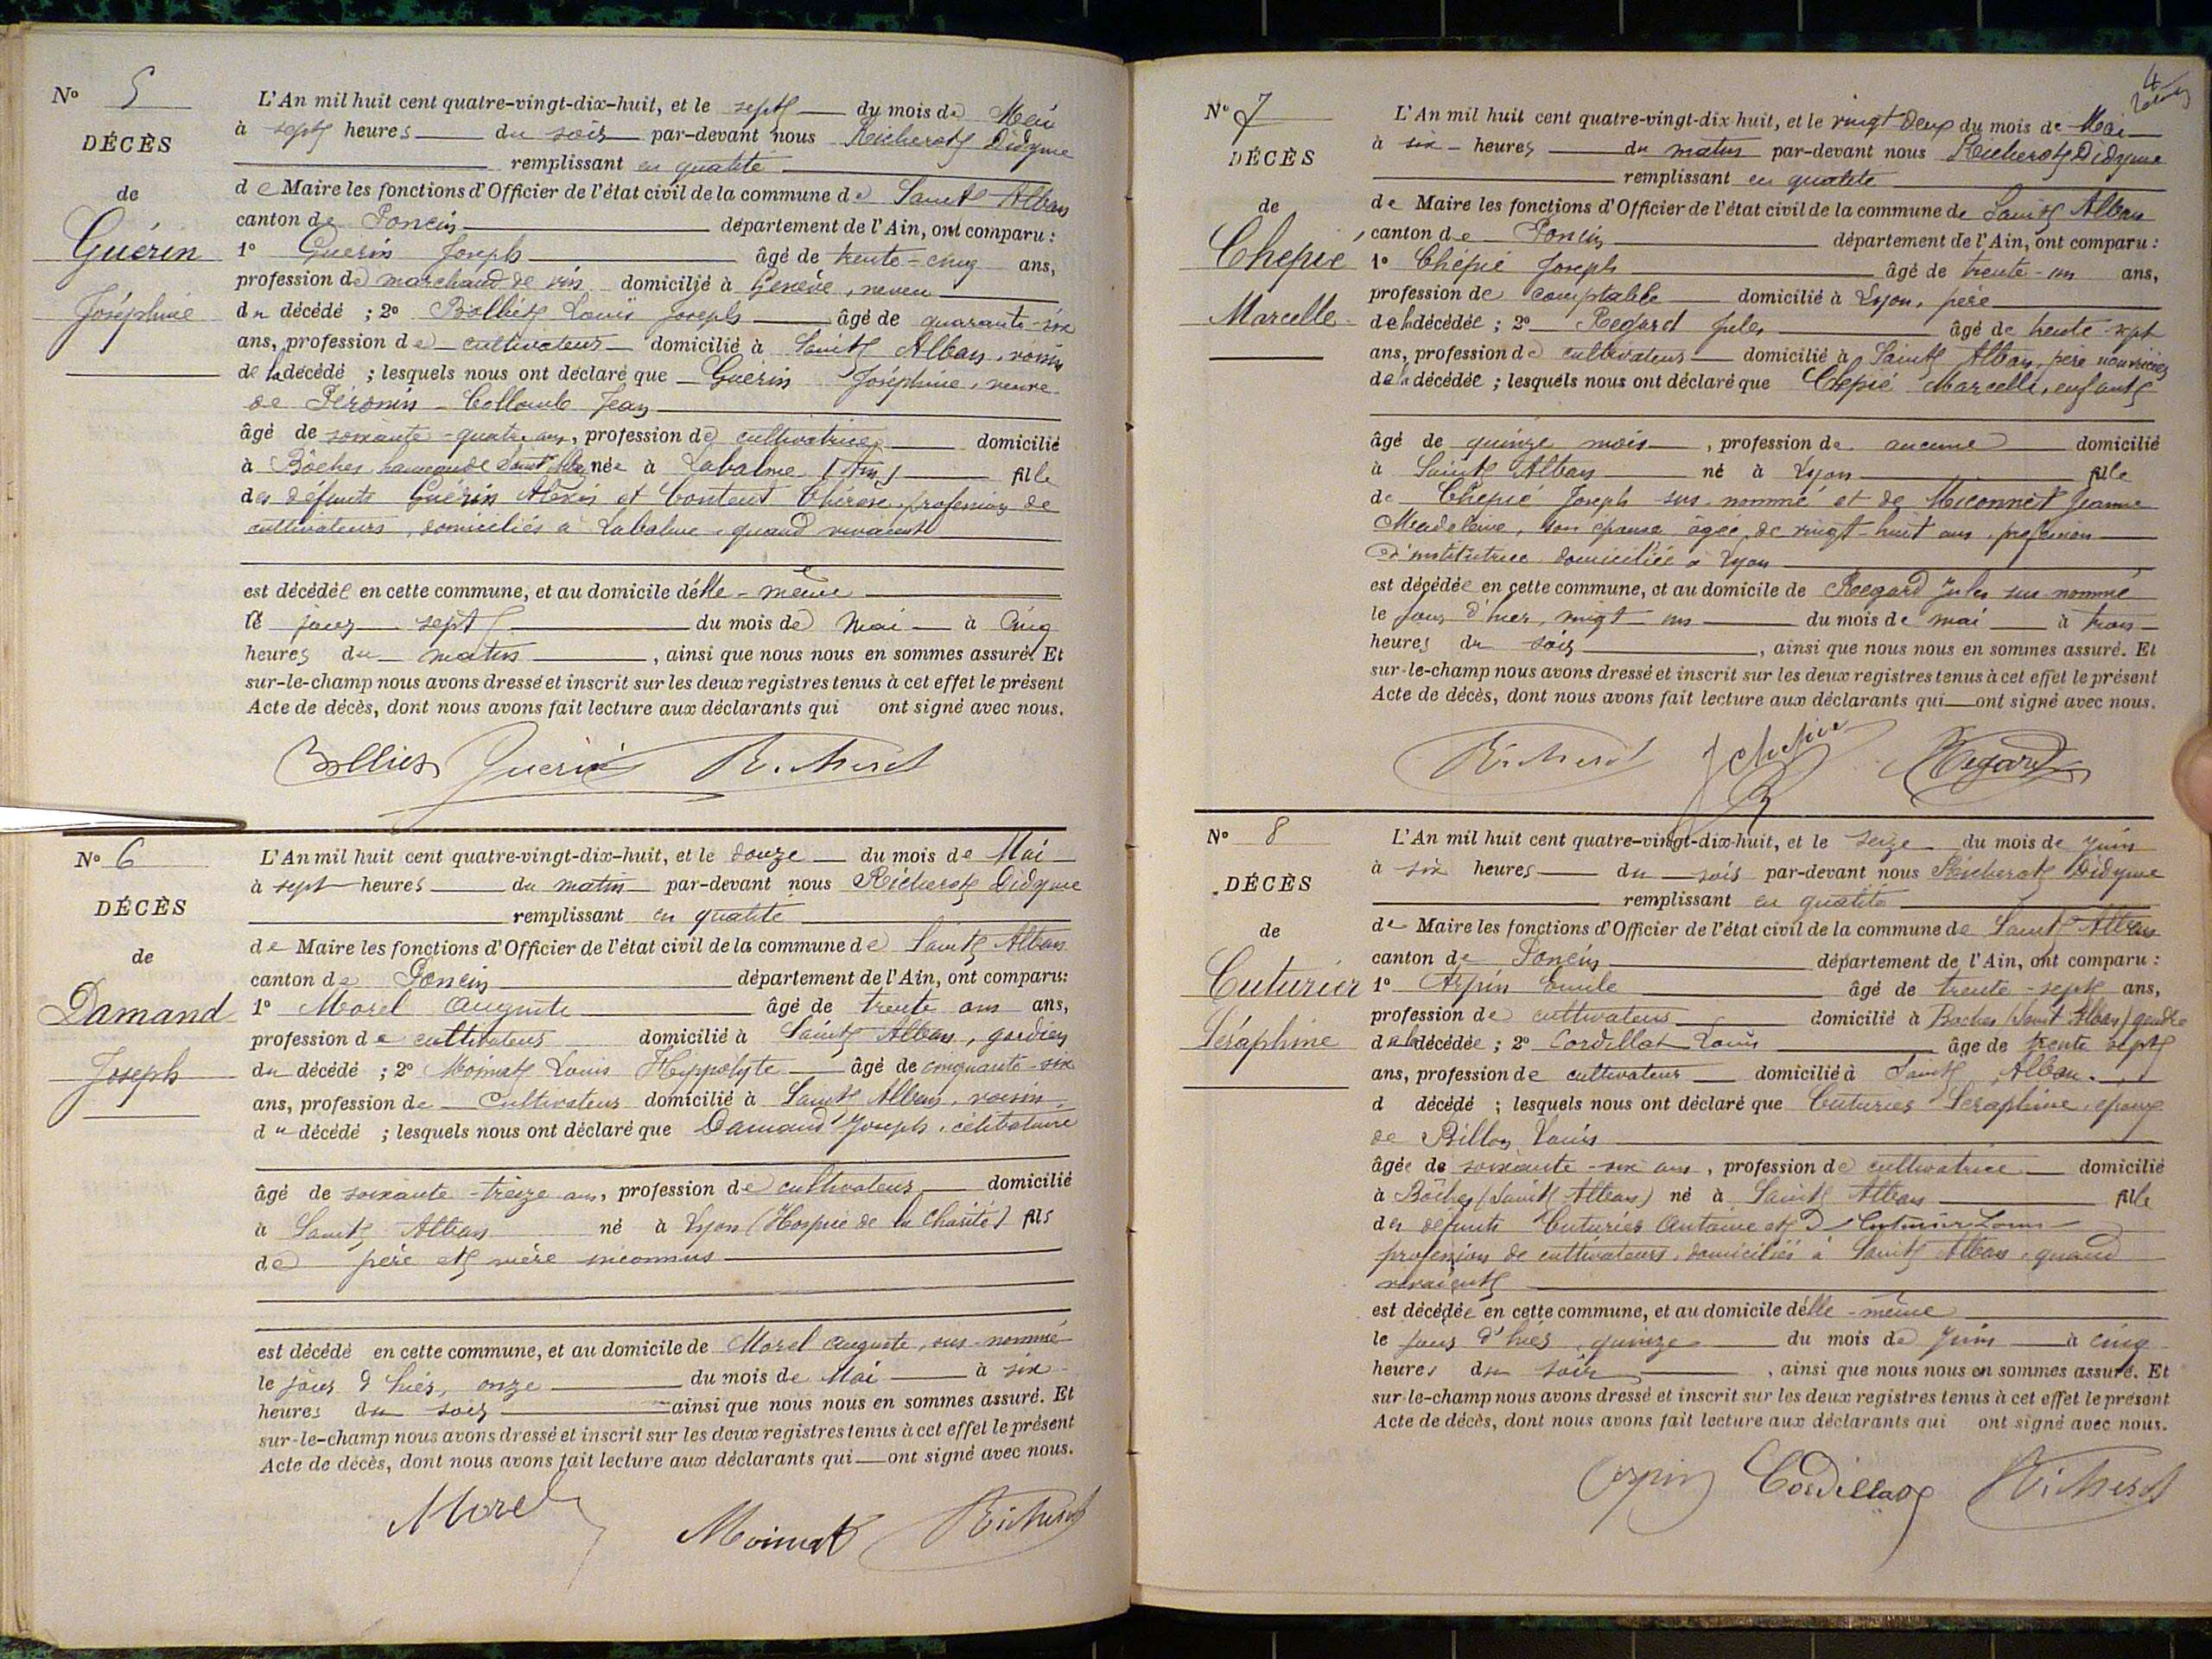 N° 5
DÉCÈS
de
Guérin
Joséphine
L'An mil huit cent quatre-vingt-dix-huit, et le sept du mois de Mai
à sept heures du soir par-devant nous Richerot Didyme
remplissant en qualité
de Maire les fonctions d'Officier de l'état civil de la commune de Saint Alban
canton de Poncin département de l'Ain, ont comparu :
1° Guérin Joseph âgé de trente-cinq ans,
profession de marchand de vin domicilié à Genève, neveu
du décédé ; 2° Bolliet Louis Joseph âgé de quarante-six
ans, profession de cultivateur domicilié à Saint Alban, voisin
de la décédé ; lesquels nous ont déclaré que Guérin Joséphine, veuve
de Collomb Jean
âgé de soixante-quatre ans, profession de cultivatrice domicilié
à Bôches hameau de Saint Alban née à Labalme (Ain) fille
des défunts Guérin Alexis et Content Thérèse, profession de
cultivateurs, domiciliés à Labalme, quand vivaient
est décédée en cette commune, et au domicile d'elle-même
le jour sept du mois de Mai à cinq
heures du matin, ainsi que nous nous en sommes assuré. Et
sur-le-champ nous avons dressé et inscrit sur les deux registres tenus à cet effet le présent
Acte de décès, dont nous avons fait lecture aux déclarants qui ont signé avec nous.
Bolliet Guerin Richerot
N° 6
DÉCÈS
de
Damand
Joseph
L'An mil huit cent quatre-vingt-dix-huit, et le douze du mois de Mai
à sept heures du matin par-devant nous Richerot Didyme
remplissant en qualité
de Maire les fonctions d'Officier de l'état civil de la commune de Saint Alban
canton de Poncin département de l'Ain, ont comparu :
1° Morel Auguste âgé de trente ans ans,
profession de cultivateur domicilié à Saint Alban, gardien
du décédé ; 2° Moinat Louis Hippolyte âgé de cinquante-six
ans, profession de Cultivateur domicilié à Saint Alban, voisin,
du décédé ; lesquels nous ont déclaré que Damand Joseph, célibataire
âgé de soixante-treize ans, profession de cultivateur domicilié
à Saint Alban né à Lyon (Hospice de la Charité) fils
de père et mère inconnus
est décédé en cette commune, et au domicile de Morel Auguste, sus-nommé
le jour d'hier, onze du mois de Mai à six
heures du soir ainsi que nous nous en sommes assuré. Et
sur-le-champ nous avons dressé et inscrit sur les deux registres tenus à cet effet le présent
Acte de décès, dont nous avons fait lecture aux déclarants qui ont signé avec nous.
Morel Moinat Richerot
4
N° 7
DÉCÈS
de
Chepié
Marcelle
L'An mil huit cent quatre-vingt-dix-huit, et le vingt deux du mois de Mai
à six heures du matin par-devant nous Richerot Didyme
remplissant en qualité
de Maire les fonctions d'Officier de l'état civil de la commune de Saint Alban
canton de Poncin département de l'Ain, ont comparu :
1° Chepié Joseph âgé de trente-un ans,
profession de comptable domicilié à Lyon, père
de la décédée ; 2° Regard Jules âgé de trente-sept
ans, profession de cultivateur domicilié à Saint Alban, père nourricier
de la décédée ; lesquels nous ont déclaré que Chepié Marcelle, enfant
âgé de quinze mois, profession de aucune domicilié
à Saint Alban né à Lyon fille
de Chepié Joseph sus-nommé et de Miconnet Jeanne
Madeleine, son épouse âgée de vingt-huit ans, profession
d'institutrice domiciliée à Lyon
est décédée en cette commune, et au domicile de Regard Jules sus-nommé
le jour d'hier, vingt-un du mois de mai à trois
heures du soir, ainsi que nous nous en sommes assuré. Et
sur-le-champ nous avons dressé et inscrit sur les deux registres tenus à cet effet le présent
Acte de décès, dont nous avons fait lecture aux déclarants qui ont signé avec nous.
Richerot J Chepié Regard
N° 8
DÉCÈS
de
Cuturier
Séraphine
L'An mil huit cent quatre-vingt-dix-huit, et le seize du mois de Juin
à six heures du soir par-devant nous Richerot Didyme
remplissant en qualité
de Maire les fonctions d'Officier de l'état civil de la commune de Saint Alban
canton de Poncin département de l'Ain, ont comparu :
1° Arpin Emile âgé de trente-sept ans,
profession de cultivateur domicilié à Boches (Saint Alban) gendre
de la décédée ; 2° Cordillat Louis âgé de trente sept
ans, profession de cultivateur domicilié à Saint Alban.
d décédé ; lesquels nous ont déclaré que Cuturier Séraphine, épouse
de Billon Louis
âgée de soixante-six ans, profession de cultivatrice domicilié
à Bôches (Saint Alban) né à Saint Alban fille
des défunts Cuturier Antoine et D Cuturier
profession de cultivateurs, domiciliés à Saint Alban, quand
vivaient
est décédée en cette commune, et au domicile d'elle-même
le jour d'hier, quinze du mois de Juin à cinq
heures du soir, ainsi que nous nous en sommes assuré. Et
sur-le-champ nous avons dressé et inscrit sur les deux registres tenus à cet effet le présent
Acte de décès, dont nous avons fait lecture aux déclarants qui ont signé avec nous.
Arpin Cordillat Richerot